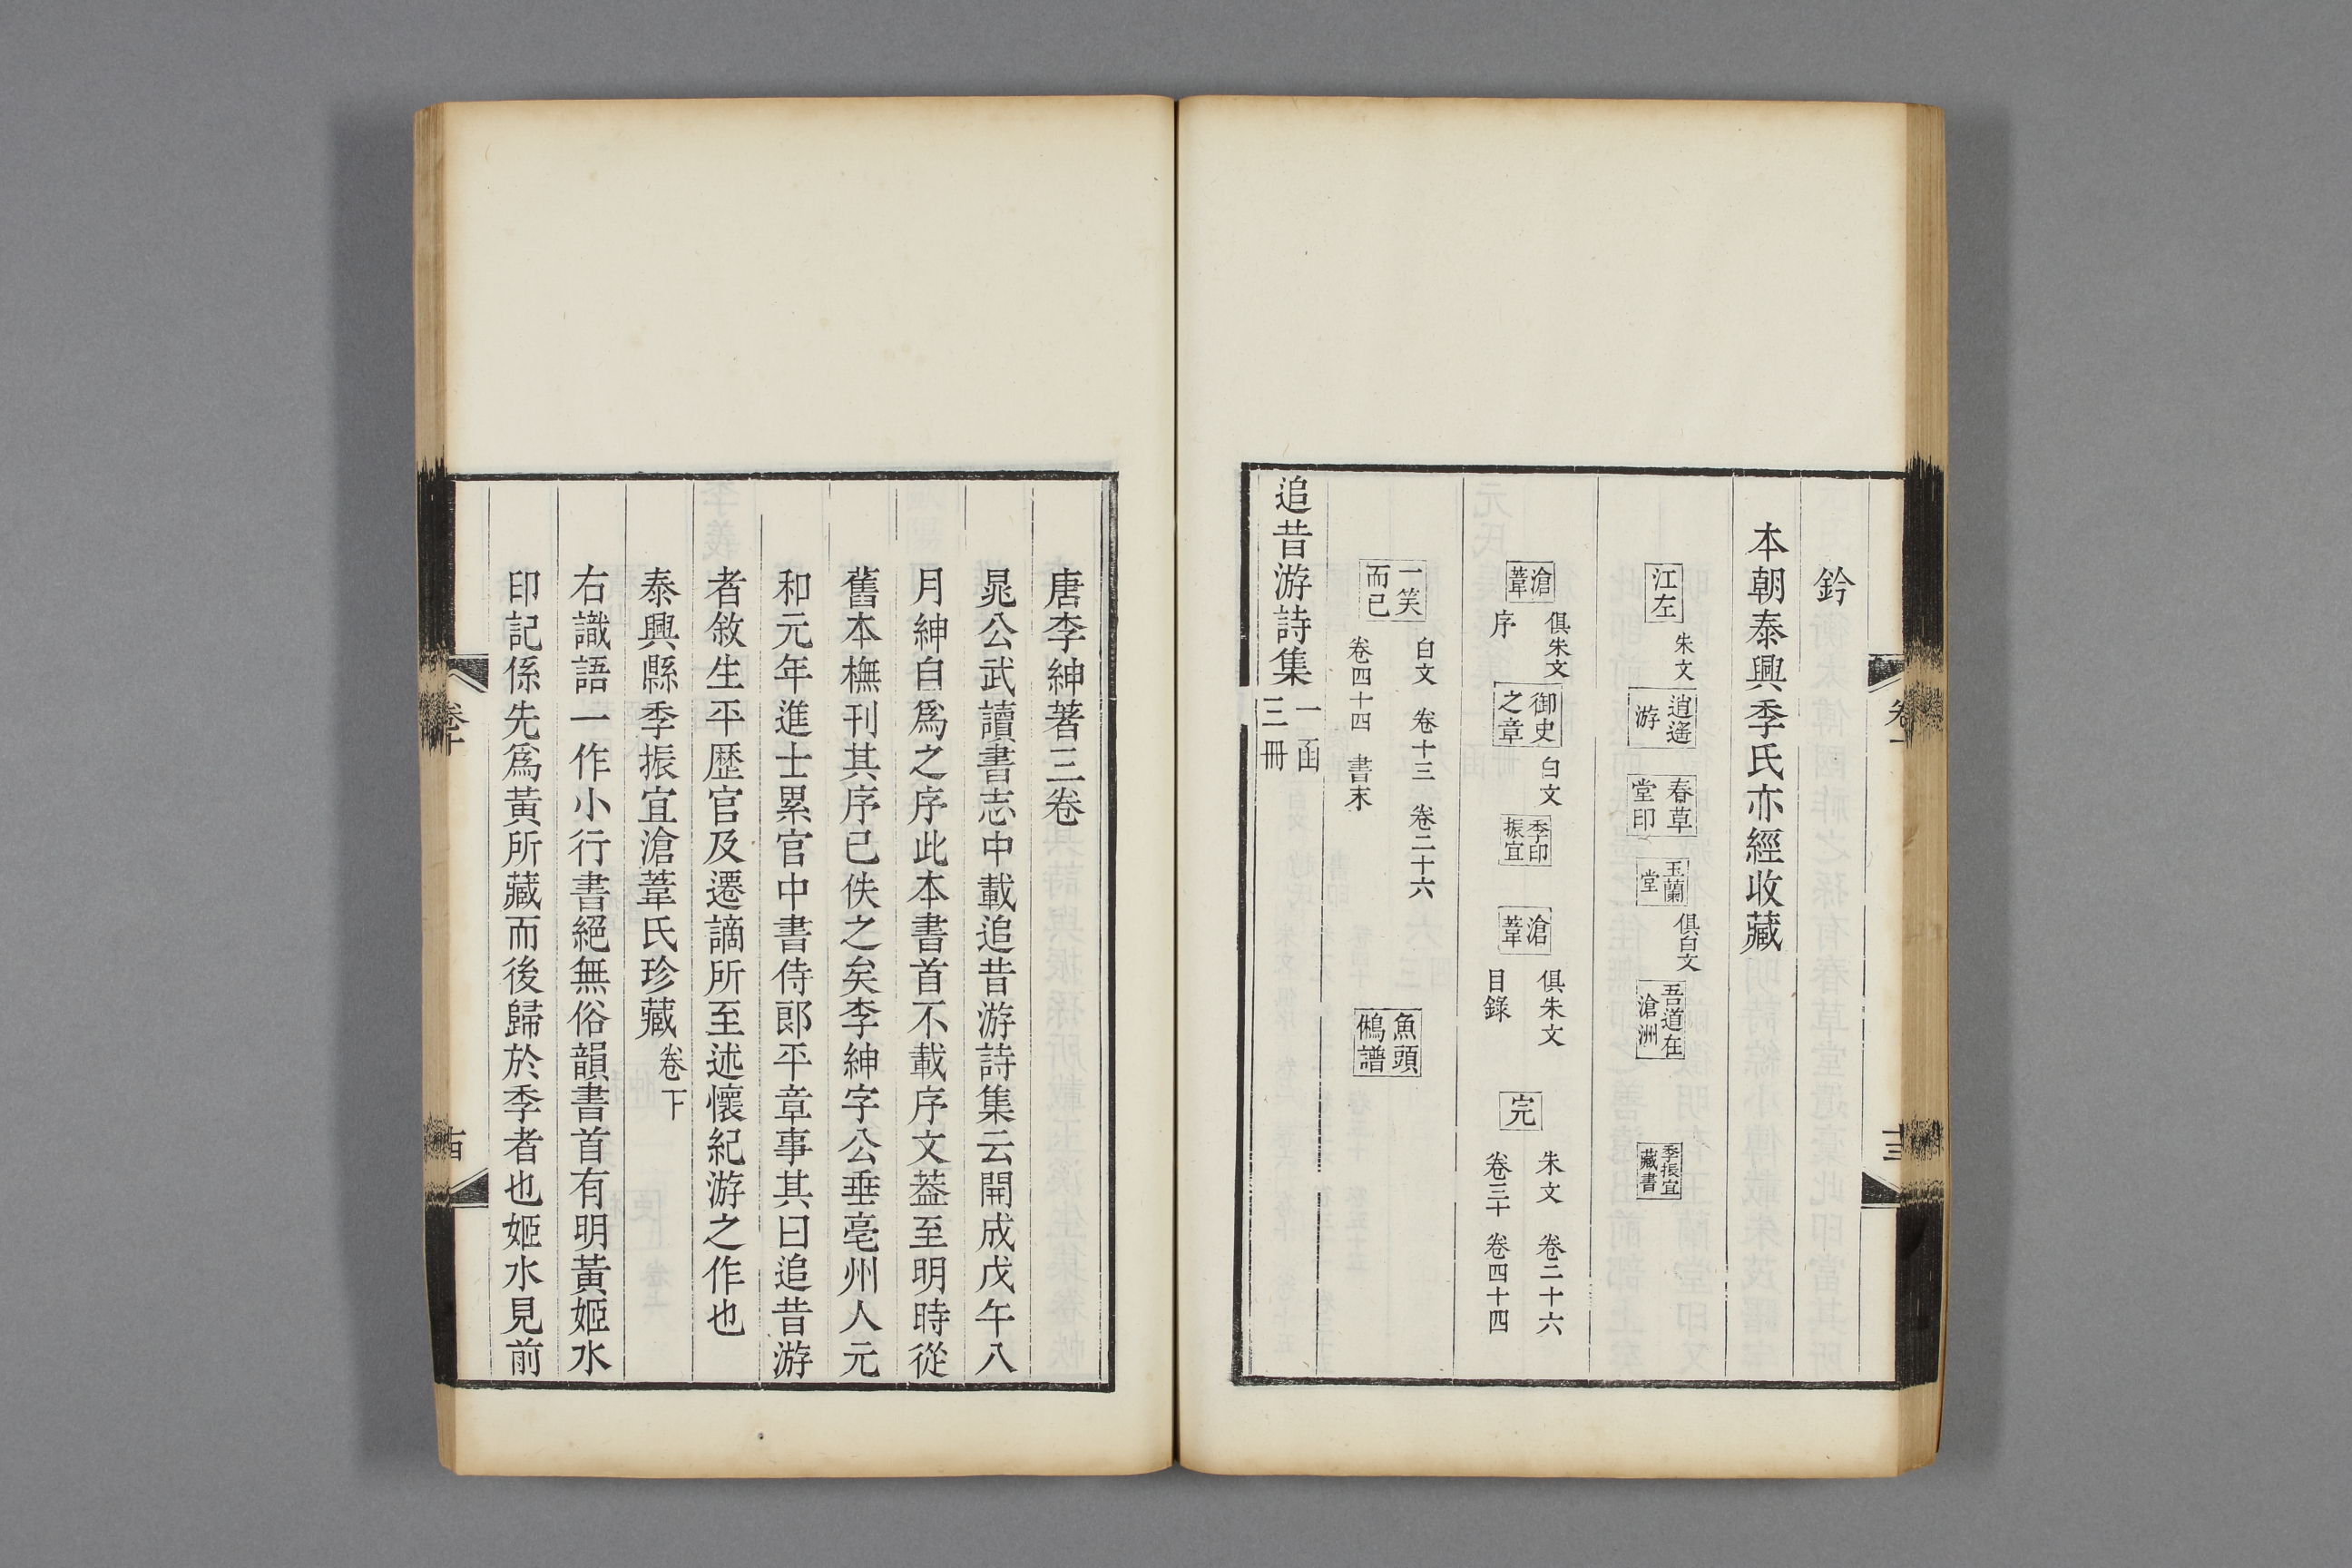 鈐
本朝泰興季氏亦經收藏
江左 朱文 逍遙游 春草堂印 玉蘭堂 俱白文 吾道在滄洲 季振宜藏書
滄葦 俱朱文 序 御史之章 白文 季印振宜 滄葦 俱朱文 目錄 完 朱文 卷二十六 卷三十 卷四十四
一笑而已 白文 卷十三 卷二十六 卷四十四 書末 魚頭 譜
追昔游詩集 一函三冊
唐李紳著三卷
晁公武讀書志中載追昔游詩集云開成戊午八
月紳自爲之序此本書首不載序文葢至明時從
舊本橅刊其序已佚之矣李紳字公垂亳州人元
和元年進士累官中書侍郎平章事其曰追昔游
者敘生平歷官及遷謫所至述懷紀游之作也
泰興縣季振宜滄葦氏珍藏 卷下
右識語一作小行書絕無俗韻書首有明黃姬水
印記係先爲黃所藏而後歸於季者也姬水見前